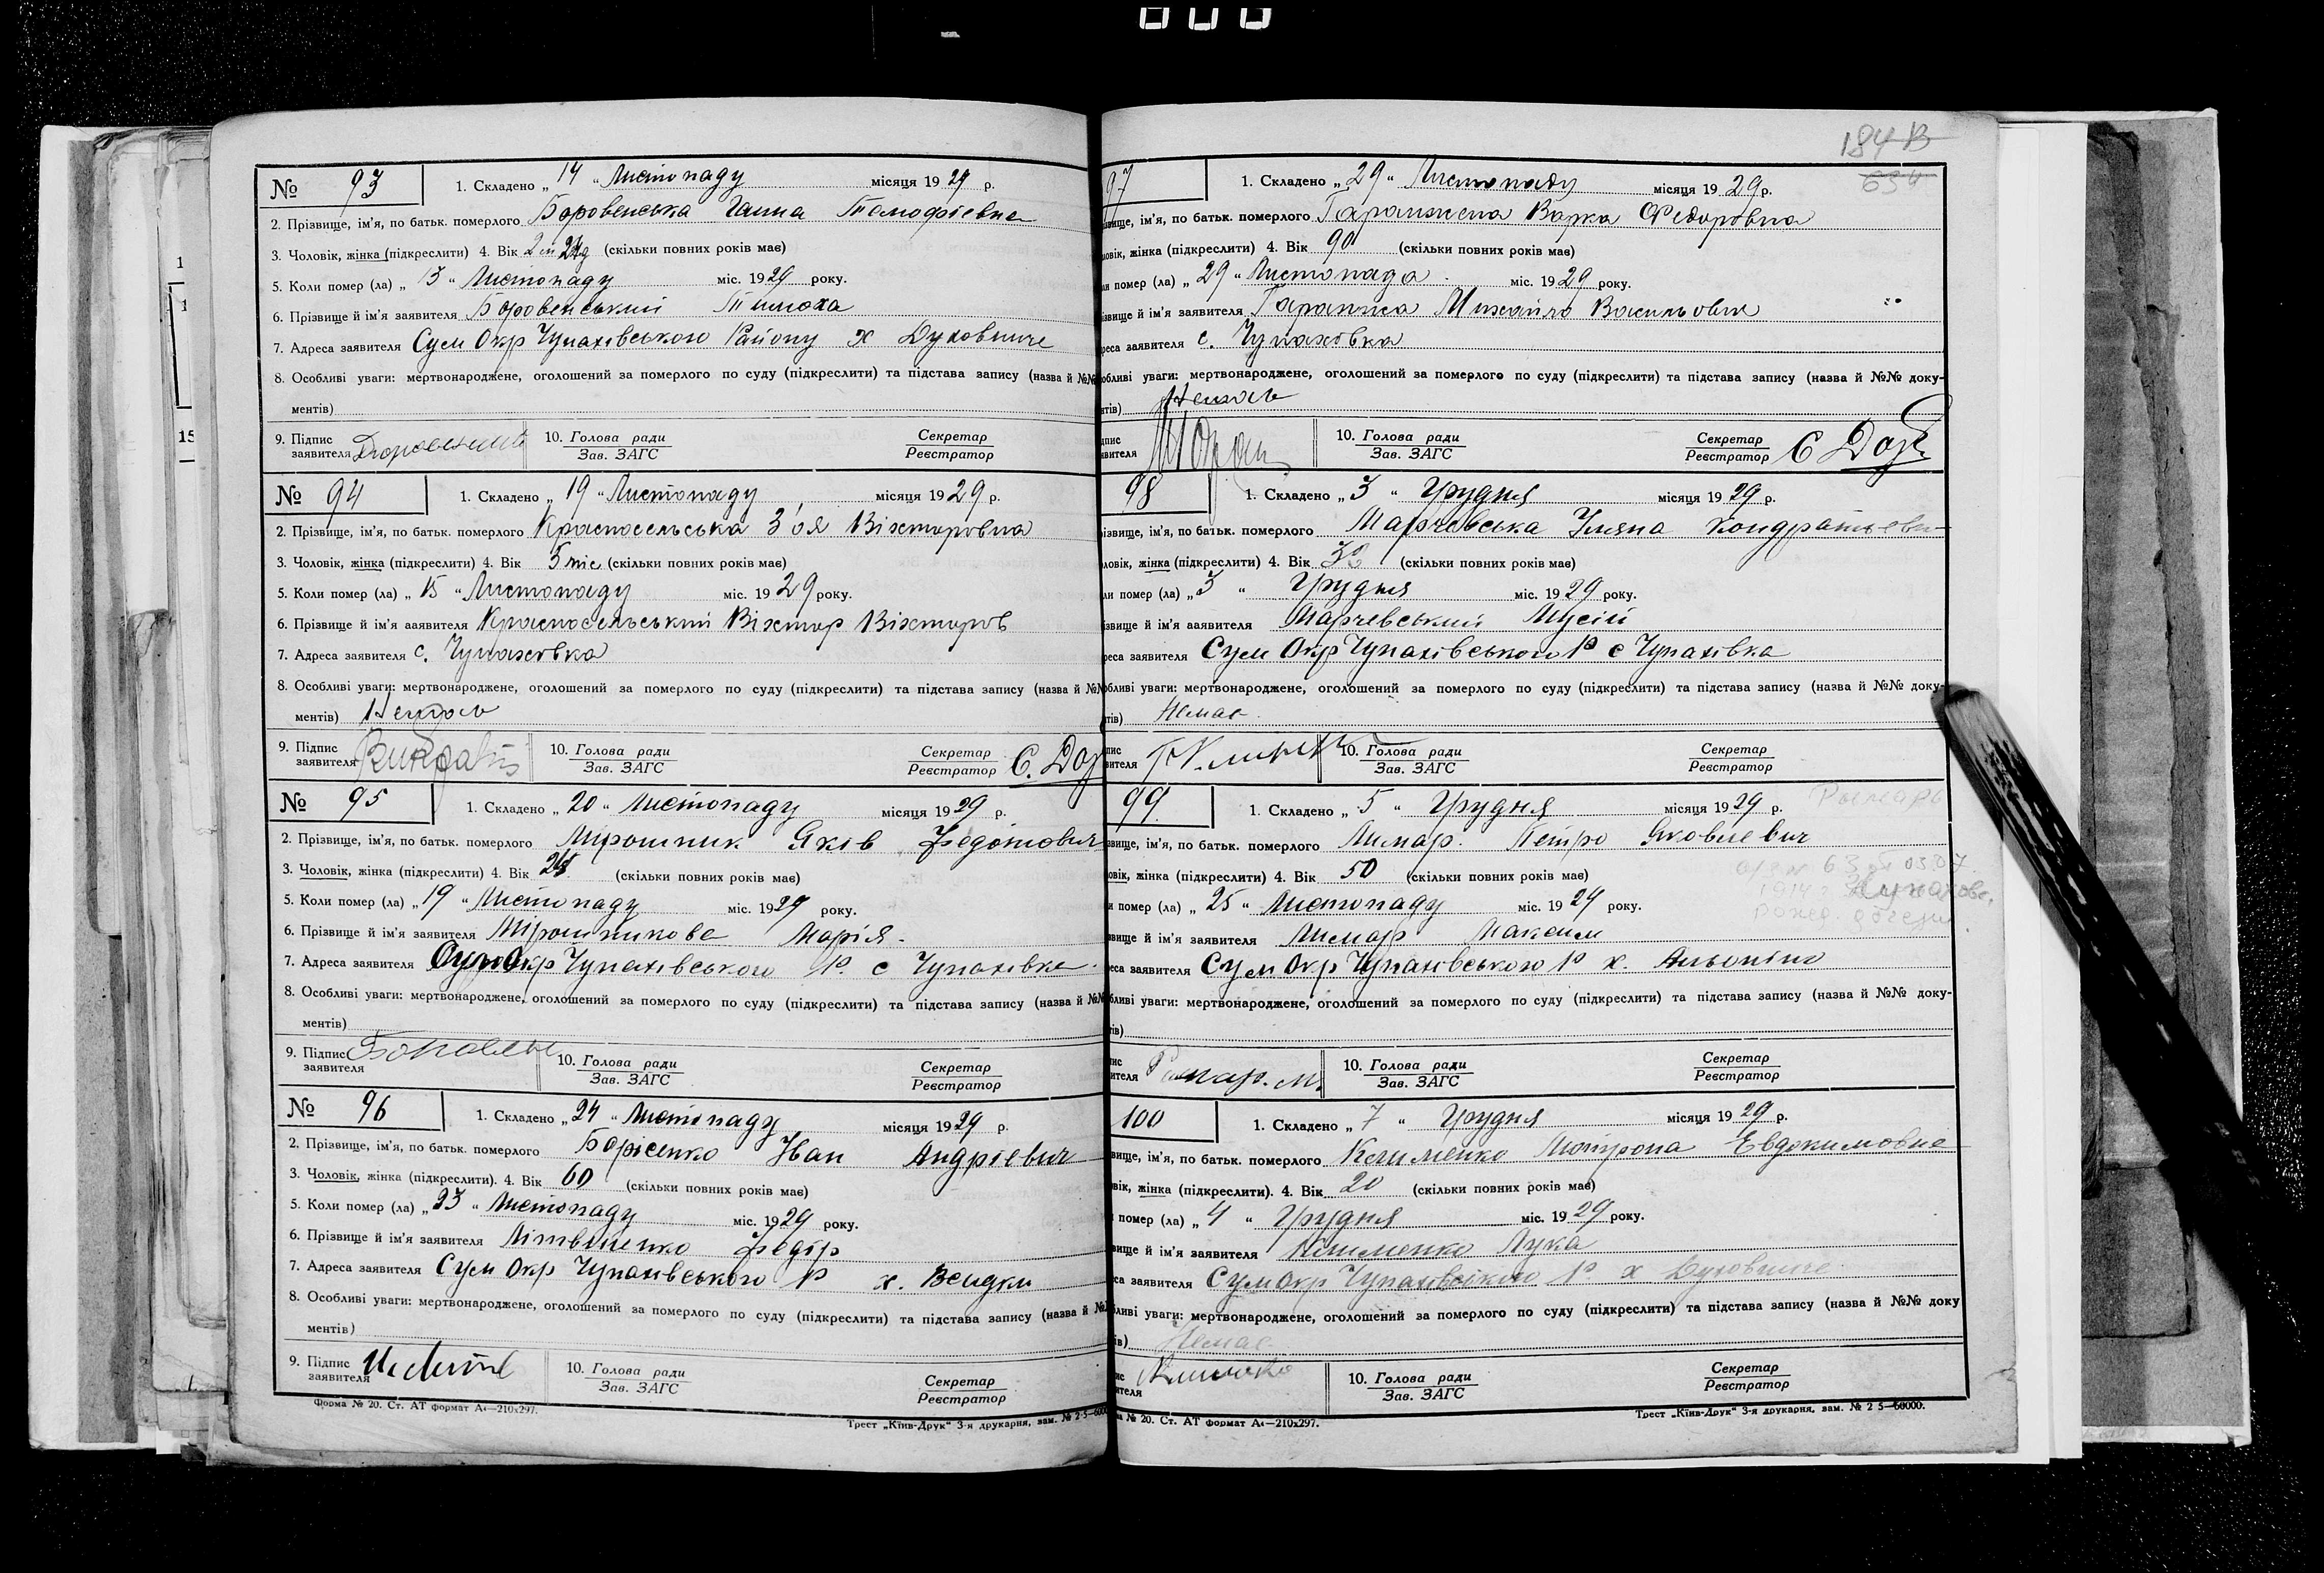 № 93 1. Складено „ 14 “ Листопаду місяця 1929 р.
2. Прізвище, ім'я, по батьк. померлого Боровенська Ганна Тимофіевна
3. Чоловік, жінка (підкреслити) 4. Вік 2 (скільки повних років має)
5. Коли помер (ла) „ 13 “ Листопаду міс. 1929 року.
6. Прізвище й ім'я заявителя Боровенський Тимоха
7. Адреса заявителя Сум Окр Чупахівського Району х Духовниче
8. Особливі уваги: мертвонароджене, оголошений за померлого по суду (підкреслити) та підстава запису (назва й №№
ментів)
9. Підпис заявителя 10. Голова ради Зав. ЗАГС Секретар Реєстратор
№ 94 1. Складено „ 19 “ Листопаду місяця 1929 р.
2. Прізвище, ім'я, по батьк. померлого Красносельська З'оя Вікторовна
3. Чоловік, жінка (підкреслити) 4. Вік 5 міс (скільки повних років має)
5. Коли помер (ла) „ 15 “ Листопаду міс. 1929 року.
6. Прізвище й ім'я заявителя Красносельський Віктор Вікторов
7. Адреса заявителя с. Чупаховка
8. Особливі уваги: мертвонароджене, оголошений за померлого по суду (підкреслити) та підстава запису (назва й №№
ментів)
9. Підпис заявителя 10. Голова ради Зав. ЗАГС Секретар Реєстратор
№ 95 1. Складено „ 20 “ Листопаду місяця 1929 р.
2. Прізвище, ім'я, по батьк. померлого Мірошник Яків Федотович
3. Чоловік, жінка (підкреслити) 4. Вік (скільки повних років має)
5. Коли помер (ла) „ 19 “ Листопаду міс. 1929 року.
6. Прізвище й ім'я заявителя Мірошникова Марія
7. Адреса заявителя Сум Окр Чупахівського Р. с Чупахівка
8. Особливі уваги: мертвонароджене, оголошений за померлого по суду (підкреслити) та підстава запису (назва й №№
ментів)
9. Підпис заявителя 10. Голова ради Зав. ЗАГС Секретар Реєстратор
№ 96 1. Складено „ 24 “ Листопаду місяця 1929 р.
2. Прізвище, ім'я, по батьк. померлого Борісенко Іван Андріевич
3. Чоловік, жінка (підкреслити). 4. Вік 60 (скільки повних років має)
5. Коли помер (ла) „ 23 “ Листопаду міс. 1929 року.
6. Прізвище й ім'я заявителя Літвіненко Федір
7. Адреса заявителя Сум Окр Чупахівського Р х.
8. Особливі уваги: мертвонароджене, оголошений за померлого по суду (підкреслити) та підстава запису (назва й №
ментів)
9. Підпис заявителя 10. Голова ради Зав. ЗАГС Секретар Реєстратор
Форма № 20. Ст. АТ формат А4—210x297. Трест „Київ-Друк“ 3-я друкарня, зам. № 2 5—6000
184 В
97 1. Складено „ 29 “ Листопаду місяця 1929 р.
звище, ім'я, по батьк. померлого Гаранжена Варка Федоровна
ловік, жінка (підкреслити) 4. Вік 90 (скільки повних років має)
ли помер (ла) „ 29 “ Листопада міс. 1929 року.
звище й ім'я заявителя Гаранжа Михайло Васильович
реса заявителя с. Чупаховка
обливі уваги: мертвонароджене, оголошений за померлого по суду (підкреслити) та підстава запису (назва й №№ доку-
нтів)
дпис вителя 10. Голова ради Зав. ЗАГС Секретар Реєстратор
98 1. Складено „ 3 “ Грудня місяця 1929 р.
ізвище, ім'я, по батьк. померлого Марчевська Уляна Кондратьевн
ловік, жінка (підкреслити) 4. Вік (скільки повних років має)
ли помер (ла) „ 3 “ Грудня міс. 1929 року.
ізвище й ім'я заявителя Марчевський Мусій
реса заявителя Сум Окр Чупахівського Р с Чупахівка
обливі уваги: мертвонароджене, оголошений за померлого по суду (підкреслити) та підстава запису (назва й №№ доку-
тів) Немає
пис вителя 10. Голова ради Зав. ЗАГС Секретар Реєстратор
99 1. Складено „ 5 “ Грудня місяця 1929 р.
звище, ім'я, по батьк. померлого Лимар. Петро Яковлевич
овік, жінка (підкреслити) 4. Вік 50 (скільки повних років має)
и помер (ла) „ 25 “ Листопаду міс. 1929 року.
звище й ім'я заявителя Лимар Максим
еса заявителя Сум Окр Чупахівського Р х.
бливі уваги: мертвонароджене, оголошений за померлого по суду (підкреслити) та підстава запису (назва й №№ доку-
тів)
пис ителя Римар. М. 10. Голова ради Зав. ЗАГС Секретар Реєстратор
100 1. Складено „ 7 “ Грудня місяця 1929 р.
вище, ім'я, по батьк. померлого Клименко Мотрона Евдокимовна
вік, жінка (підкреслити). 4. Вік 20 (скільки повних років має)
помер (ла) „ 4 “ Грудня міс. 1929 року.
вище й ім'я заявителя Клименко Лука
са заявителя Сум Окр Чупахівського Р х Духовниче
бливі уваги: мертвонароджене, оголошений за померлого по суду (підкреслити) та підстава запису (назва й №№ доку
ів) Немає
ис ителя 10. Голова ради Зав. ЗАГС Секретар Реєстратор
ма № 20. Ст. АТ формат А4—210x297. Трест „Київ-Друк“ 3-я друкарня, зам. № 2 5—60000.